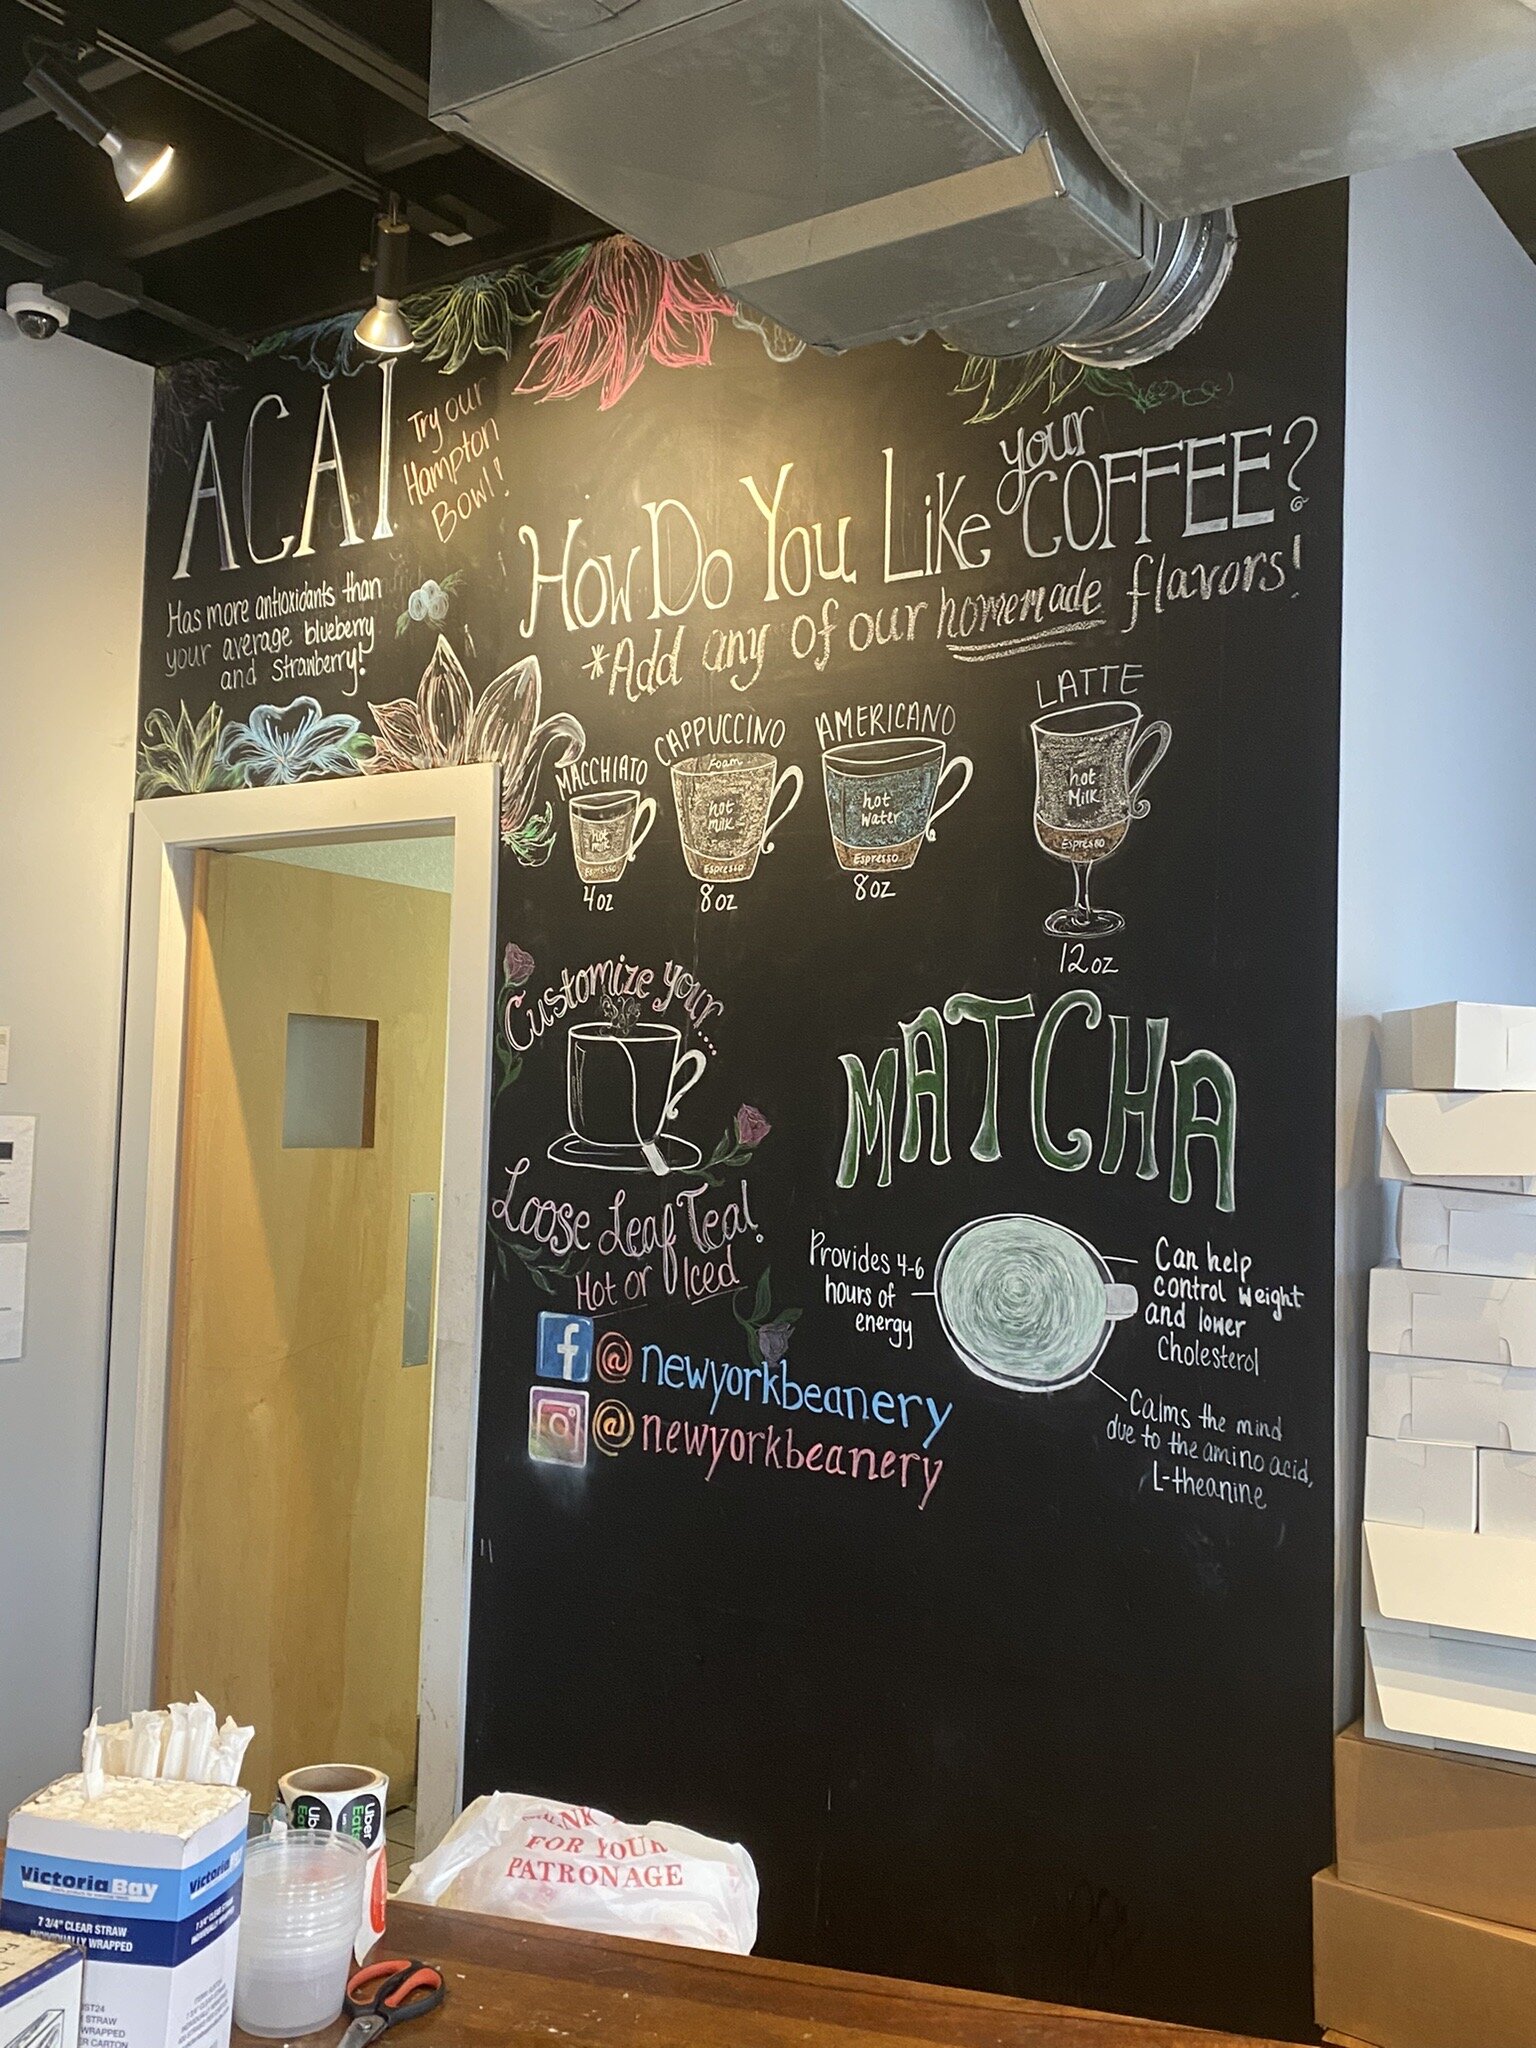 ACAI
Try our
Hampton
Bowl!
Has more antioxidants than
your average blueberry
and strawberry!
How Do You Like your COFFEE?
*Add any of our homemade flavors!
MACCHIATO
hot
milk
Espresso
4oz
CAPPUCCINO
Foam
hot
milk
Espresso
8oz
AMERICANO
hot
water
Espresso
8oz
LATTE
hot
Milk
Espresso
12oz
Customize your....
Loose Leaf Tea!
Hot or Iced
f @newyorkbeanery
@newyorkbeanery
MATCHA
Provides 4-6
hours of
energy
Can help
control weight
and lower
Cholesterol
Calms the mind
due to the amino acid,
L-theanine
VictoriaBay
7 3/4" CLEAR STRAW
INDIVIDUALLY WRAPPED
VictoriaBay
7 3/4" CLEAR STRAW
STRAW
WRAPPED
CARTON
Uber
Eats
Uber
Eats
FOR YOUR
PATRONAGE